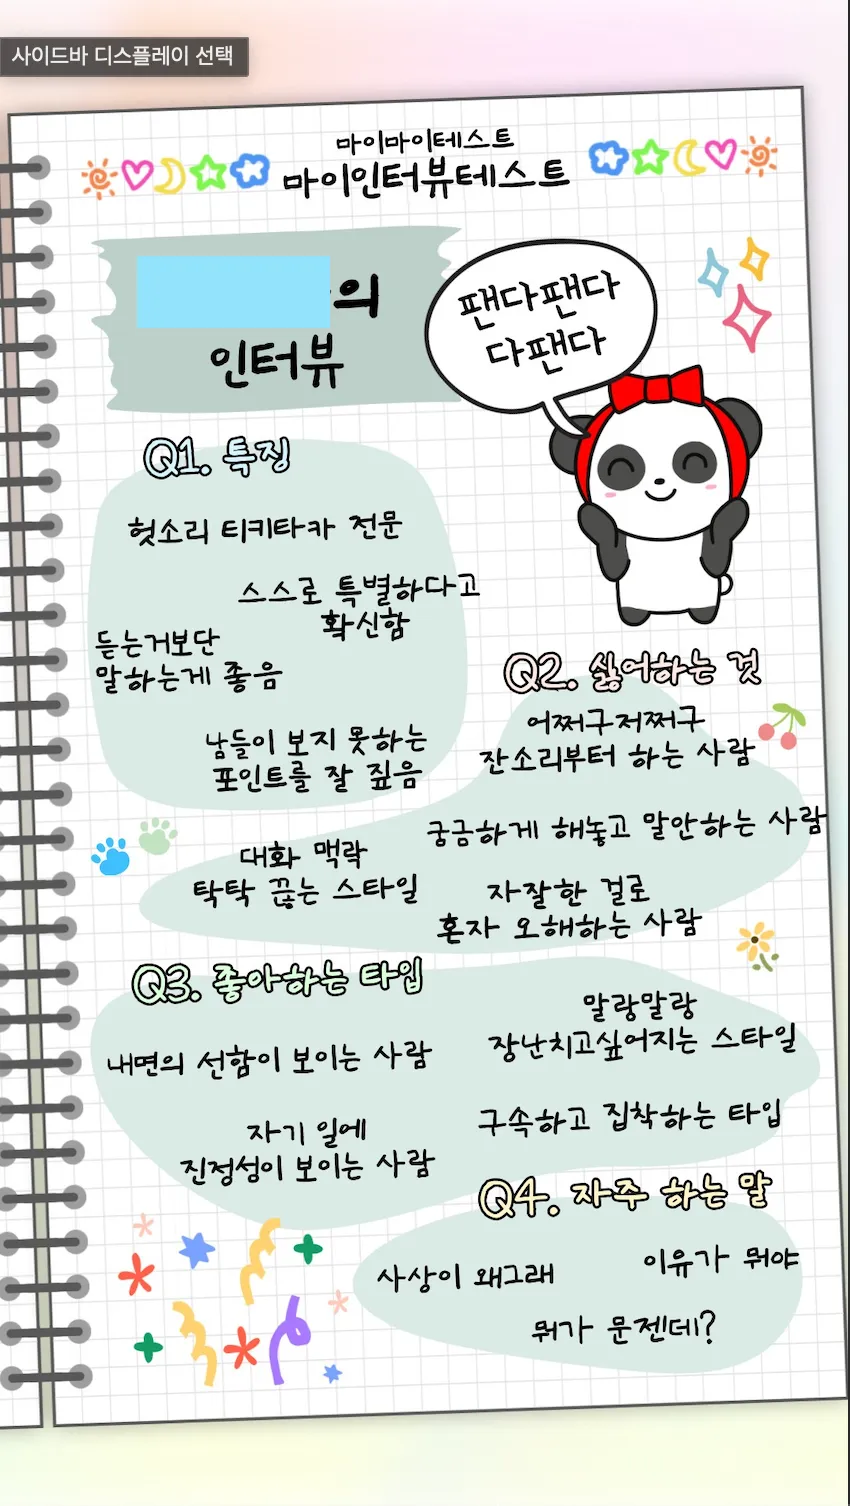 사이드바 디스플레이 선택
마이마이테스트
마이인터뷰테스트
의
인터뷰
팬다팬다
다팬다
Q1. 특징
헛소리 티키타카 전문
스스로 특별하다고
확신함
듣는거보단
말하는게 좋음
남들이 보지 못하는
포인트를 잘 짚음
Q2. 싫어하는 것
어쩌구저쩌구
잔소리부터 하는 사람
궁금하게 해놓고 말안하는 사람
대화 맥락
탁탁 끊는 스타일
자잘한 걸로
혼자 오해하는 사람
Q3. 좋아하는 타입
내면의 선함이 보이는 사람
말랑말랑
장난치고싶어지는 스타일
자기 일에
진정성이 보이는 사람
구속하고 집착하는 타입
Q4. 자주 하는 말
사상이 왜그래
이유가 뭐야
뭐가 문젠데?